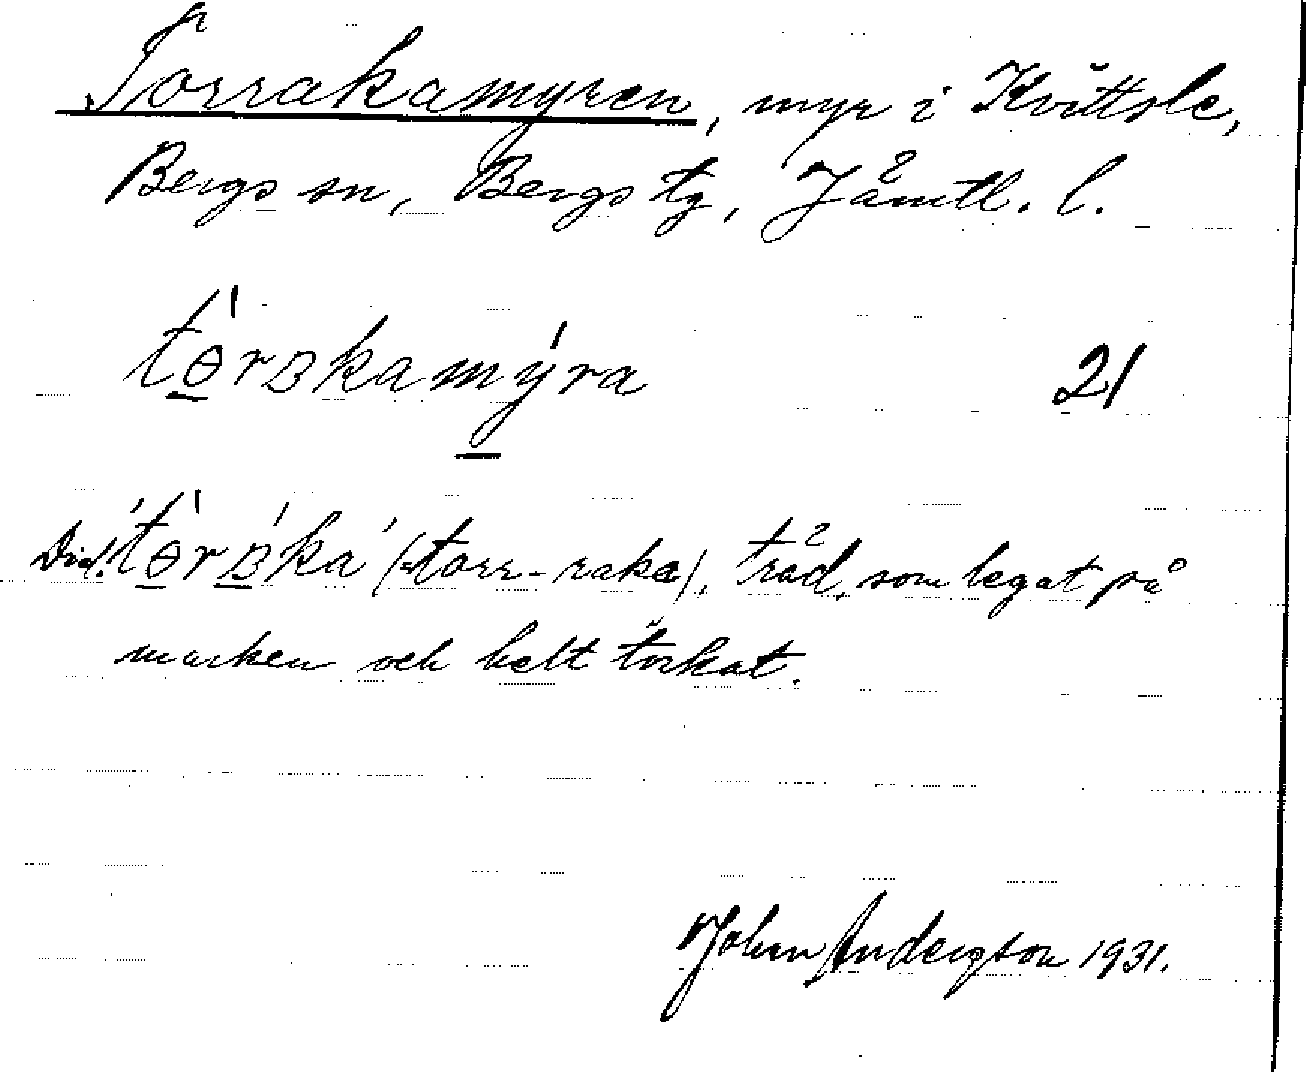 Torrakamyren, myr i Kvittsle,
Bergs sn, Bergs tg, Jämtl. l.
tɵrʙkamýra 21
Dial. 'tɵrʙka' (torr-raka), träd, som legat på
marken och helt torkat.
Johan Andersson 1931.